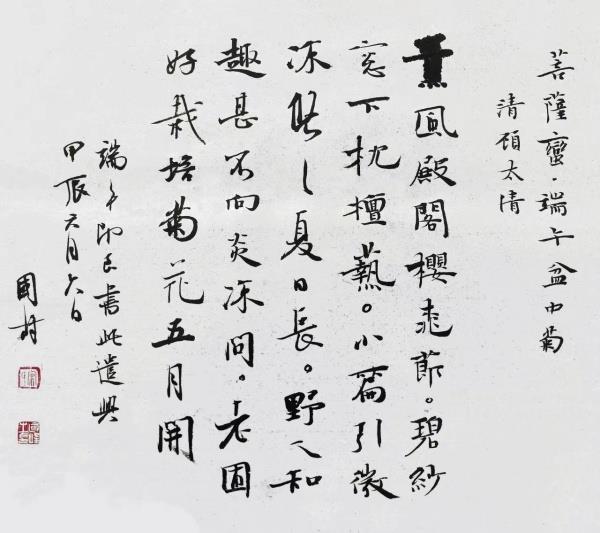 菩薩蠻·端午盆中菊
清 顧太清
薰風殿閣櫻桃節。碧紗
窓下枕檀爇。小引微
凉悠々夏日長。野人知
趣甚不向炎凉問。老圃
好栽培菊花五月開
端午即書此遣興
甲辰六月六日
國